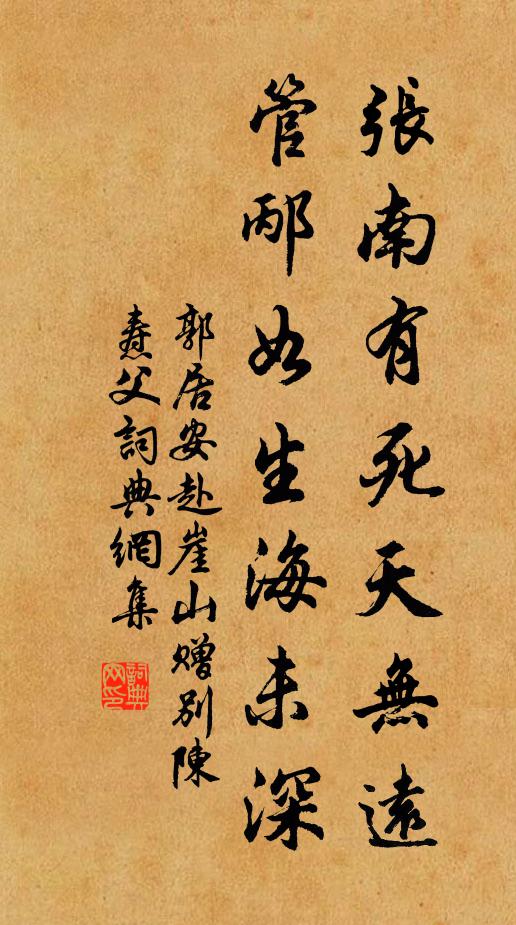 張南有死天無遠
管邴如生海未深
郭居安赴崖山赠别陳
焘父詞典網集
詞典网印